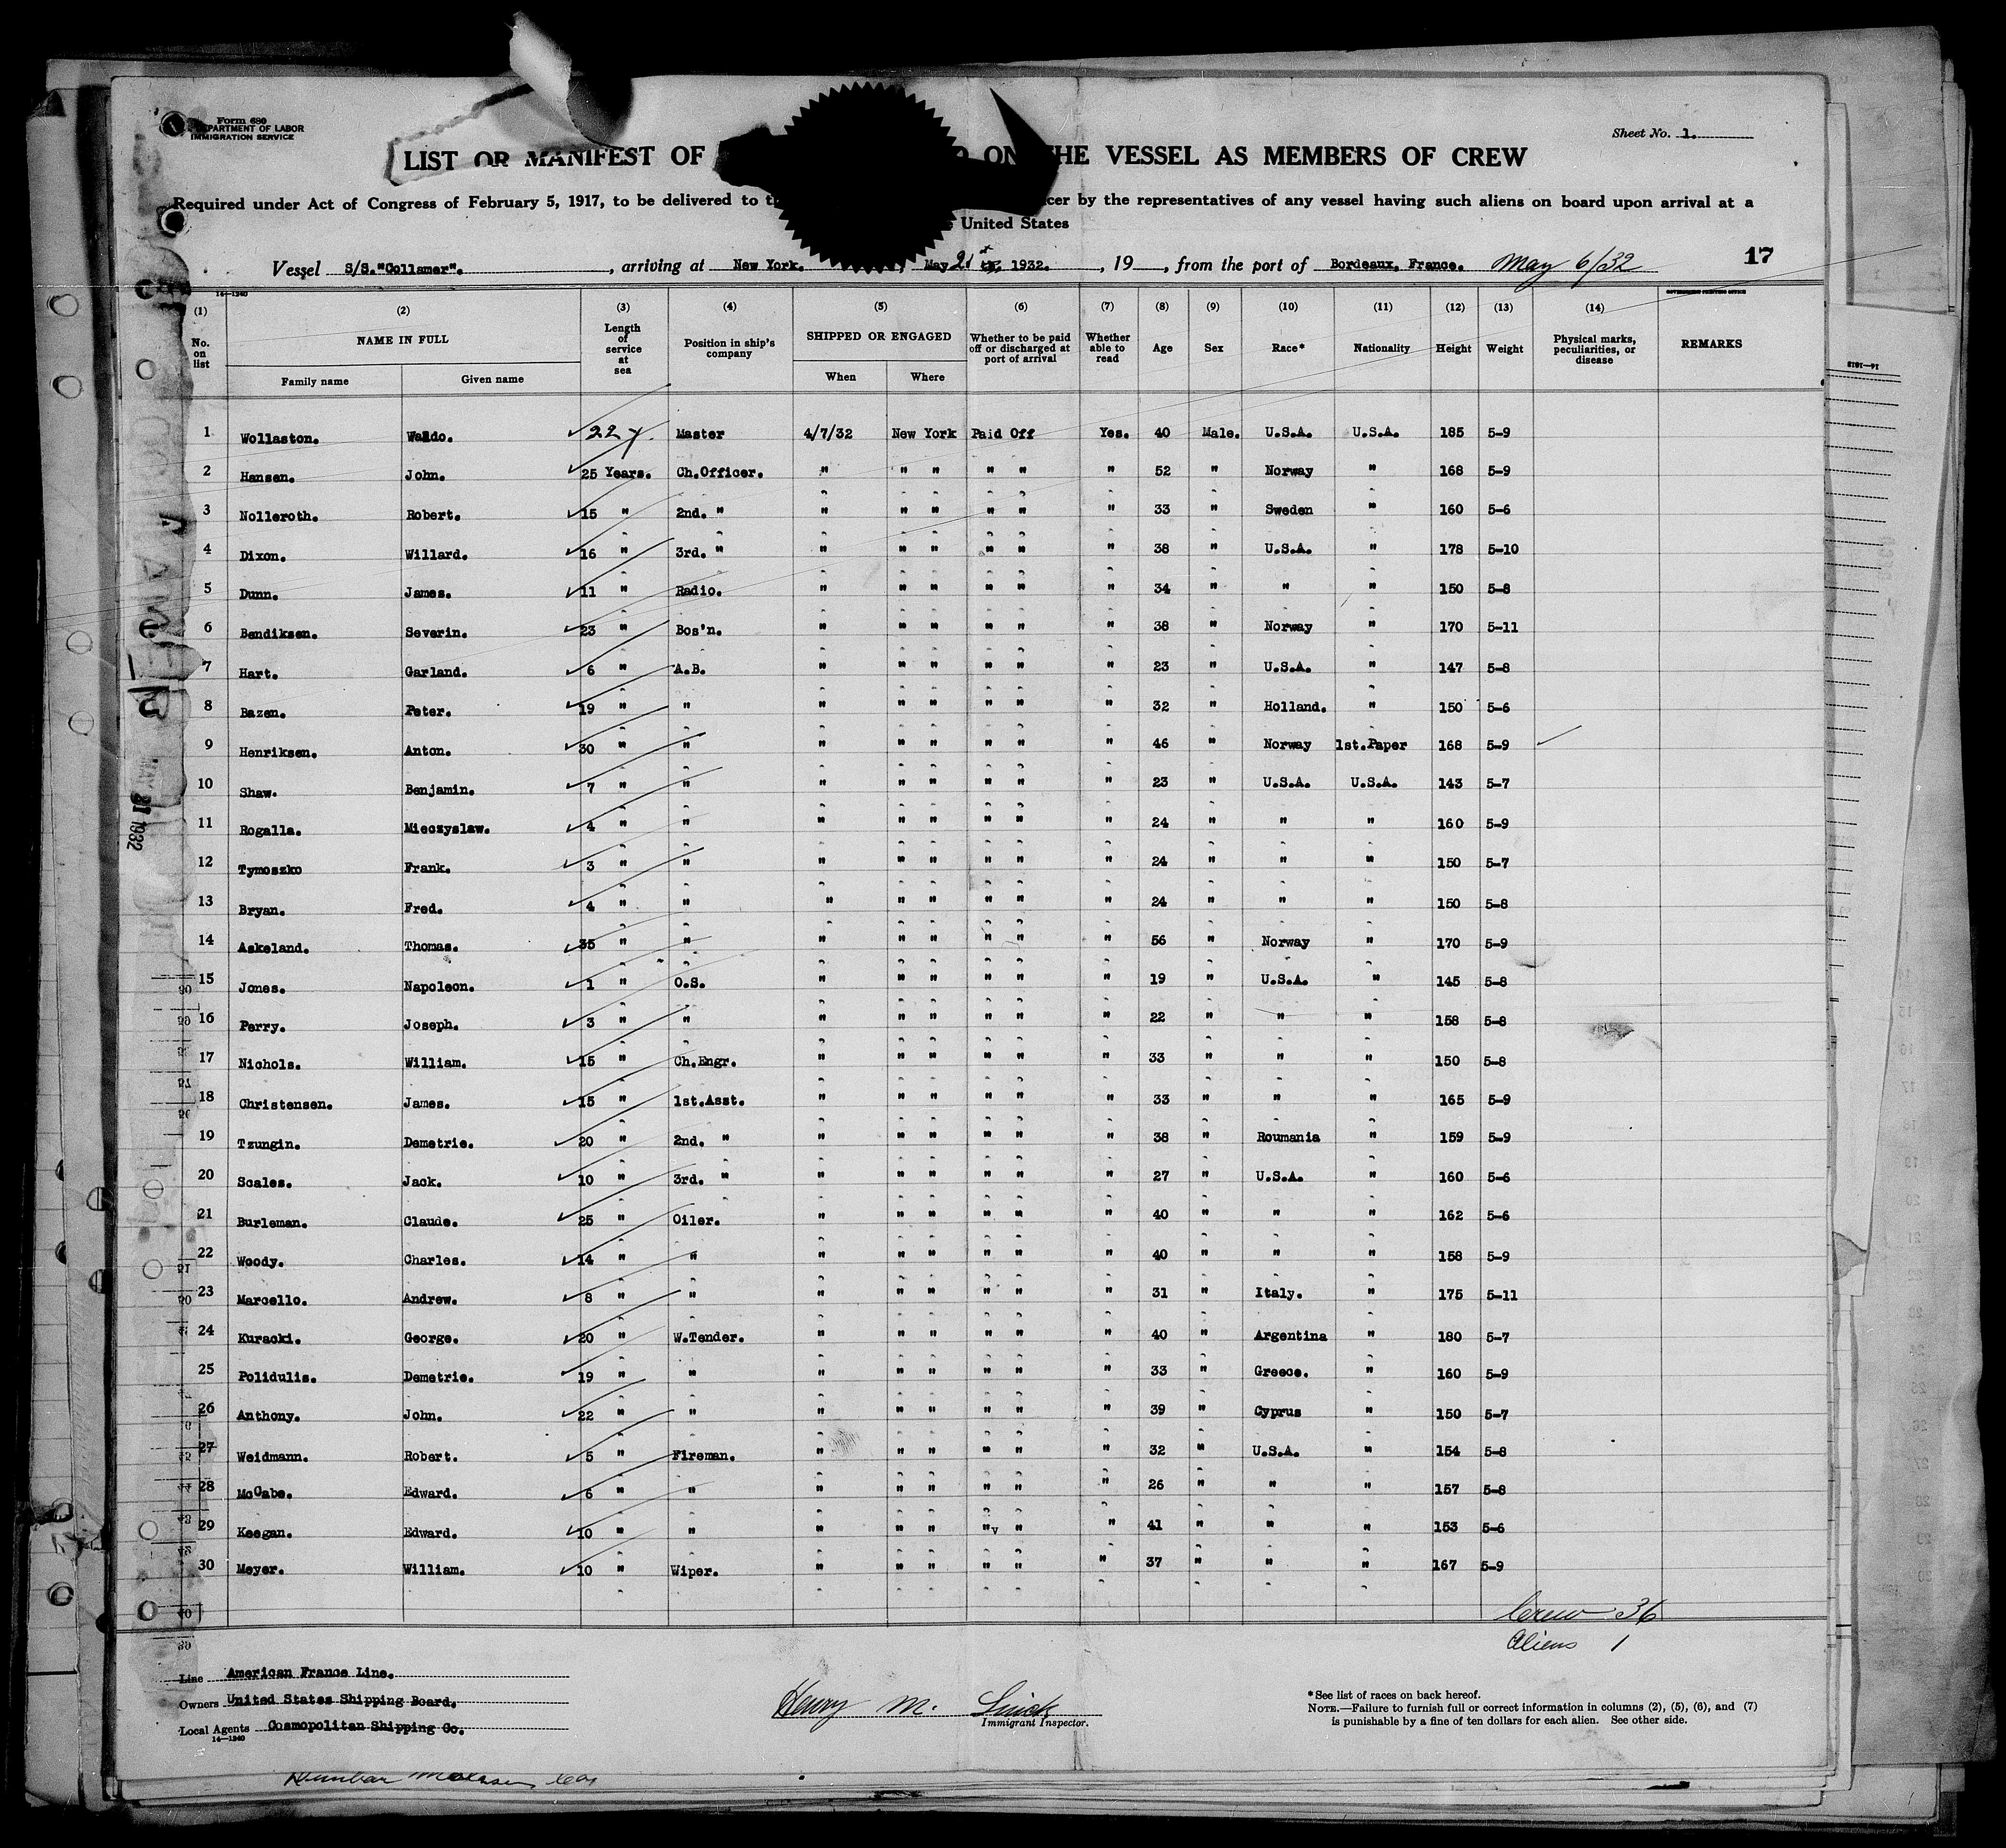 Form 680
DEPARTMENT OF LABOR
IMMIGRATION SERVICE
Sheet No. 1.
LIST OR MANIFEST OF ON THE VESSEL AS MEMBERS OF CREW
Required under Act of Congress of February 5, 1917, to be delivered to by the representatives of any vessel having such aliens on board upon arrival at a
United States
Vessel S/S."Collamer". , arriving at New York. , May 21st, 1932. , 19 , from the port of Bordeaux, France. May 6/32 17
14-1240
GOVERNMENT PRINTING OFFICE
(1) (2) (3) (4) (5) (6) (7) (8) (9) (10) (11) (12) (13) (14)
No. on list NAME IN FULL Length of service at sea Position in ship's company SHIPPED OR ENGAGED Whether to be paid off or discharged at port of arrival Whether able to read Age Sex Race* Nationality Height Weight Physical marks, peculiarities, or disease REMARKS
Family name Given name When Where
1 Wollaston. Waldo. 22 y. Master 4/7/32 New York Paid Off Yes. 40 Male. U.S.A. U.S.A. 185 5-9
2 Hansen. John. 25 Years. Ch.Officer. " " " " " " 52 " Norway " 168 5-9
3 Nolleroth. Robert. 15 " 2nd. " " " " " " " 33 " Sweden " 160 5-6
4 Dixon. Willard. 16 " 3rd. " " " " " " " 38 " U.S.A. " 178 5-10
5 Dunn. James. 11 " Radio. " " " " " " 34 " " " 150 5-8
6 Bendiksen. Severin. 23 " Bos'n. " " " " " " 38 " Norway " 170 5-11
7 Hart. Garland. 6 " A.B. " " " " " " 23 " U.S.A. " 147 5-8
8 Bazen. Peter. 19 " " " " " " " " 32 " Holland. " 150 5-6
9 Henriksen. Anton. 30 " " " " " " " " 46 " Norway 1st.Paper 168 5-9
10 Shaw. Benjamin. 7 " " " " " " " " 23 " U.S.A. U.S.A. 143 5-7
11 Rogalla. Mieczyslaw. 4 " " " " " " " " 24 " " " 160 5-9
12 Tymoszko Frank. 3 " " " " " " " " 24 " " " 150 5-7
13 Bryan. Fred. 4 " " " " " " " " 24 " " " 150 5-8
14 Askeland. Thomas. 35 " " " " " " " " 56 " Norway " 170 5-9
15 Jones. Napoleon. 1 " O.S. " " " " " " 19 " U.S.A. " 145 5-8
16 Perry. Joseph. 3 " " " " " " " " 22 " " " 158 5-8
17 Nichols. William. 15 " Ch.Engr. " " " " " " 33 " " " 150 5-8
18 Christensen. James. 15 " 1st.Asst. " " " " " " 33 " " " 165 5-9
19 Tzungin. Demetrie. 20 " 2nd. " " " " " " " 38 " Roumania " 159 5-9
20 Scales. Jack. 10 " 3rd. " " " " " " " 27 " U.S.A. " 160 5-6
21 Burleman. Claude. 25 " Oiler. " " " " " " 40 " " " 162 5-6
22 Woody. Charles. 14 " " " " " " " " 40 " " " 158 5-9
23 Marcello. Andrew. 8 " " " " " " " " 31 " Italy. " 175 5-11
24 Kuracki. George. 20 " W.Tender. " " " " " " 40 " Argentina " 180 5-7
25 Polidulis. Demetrie. 19 " " " " " " " " 33 " Greece. " 160 5-9
26 Anthony. John. 22 " " " " " " " " 39 " Cyprus " 150 5-7
27 Weidmann. Robert. 5 " Fireman. " " " " " " 32 " U.S.A. " 154 5-8
28 McCabe. Edward. 6 " " " " " " " " 26 " " " 157 5-8
29 Keegan. Edward. 10 " " " " " " " " 41 " " " 153 5-6
30 Meyer. William. 10 " Wiper. " " " " " " 37 " " " 167 5-9
Crew 36
Aliens 1
Line American France Line.
Owners United States Shipping Board.
Local Agents Cosmopolitan Shipping Co.
14-1240
Henry M.
Immigrant Inspector.
*See list of races on back hereof.
NOTE.—Failure to furnish full or correct information in columns (2), (5), (6), and (7)
is punishable by a fine of ten dollars for each alien. See other side.
COLLAMER MAY 21 1932